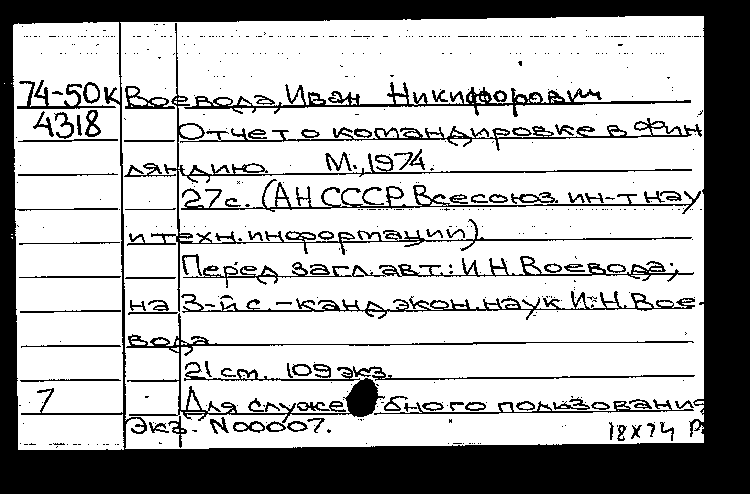 74-50к Воевода, Иван Никифорович
4318 Отчет о командировке в Фин
ляндию. М., 1974.
27с. (АН СССР. Всесоюз. ин-т нау
и техн. информации).
Перед загл. авт.: И.Н. Воевода;
на 3-й с. - канд. экон. наук И.Н. Вое-
вода.
21 ст. 109 экз.
7 Для служебного пользования
Экз. N00007.
18 X 74